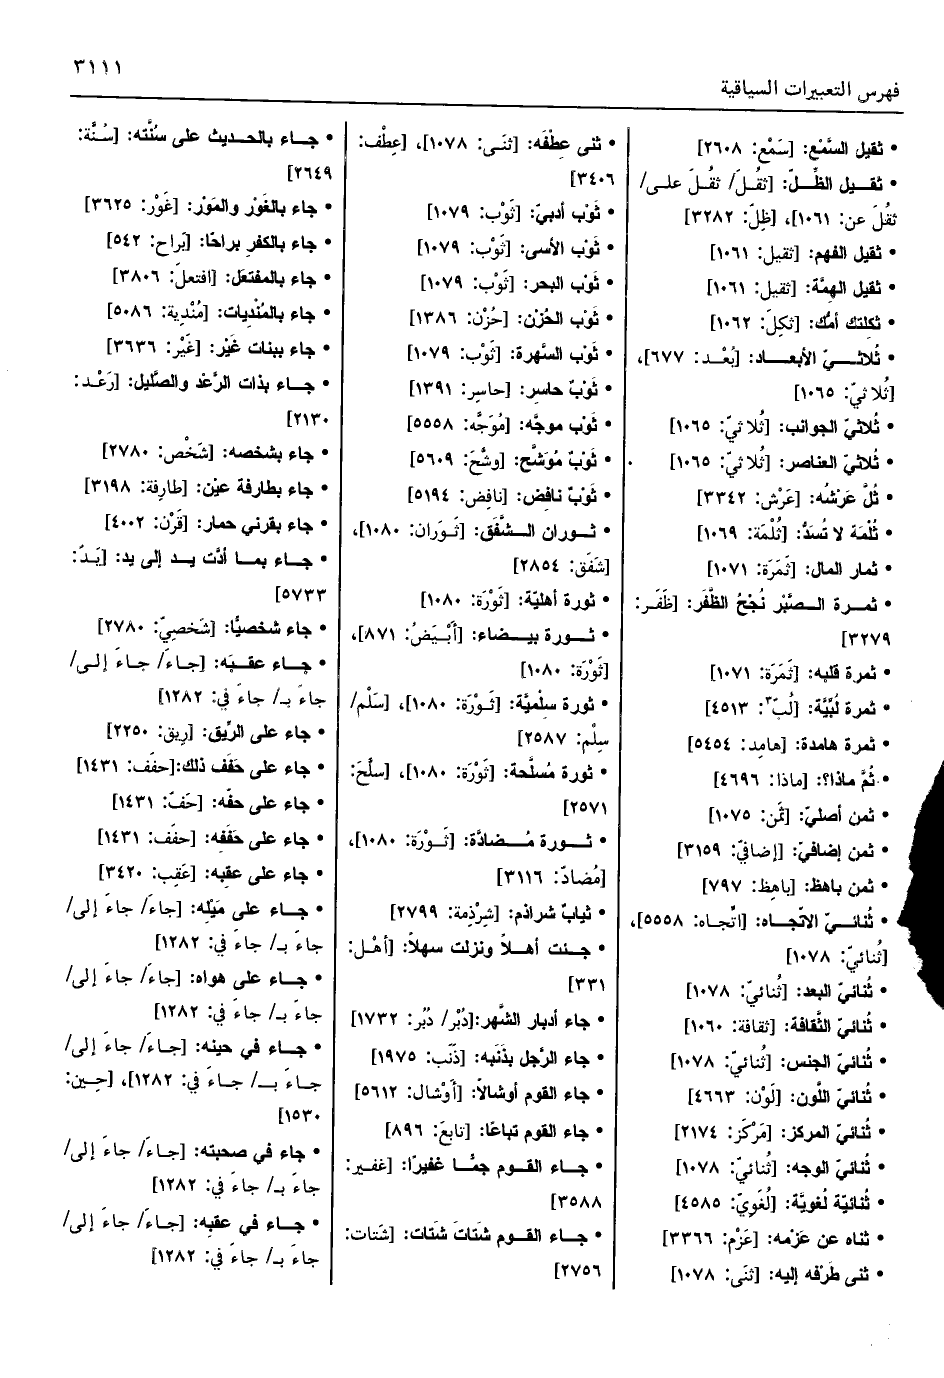 ٣١١١
فهرس التعبيرات السياقية
• ثقيل السَّمْع: [سَمْع: ٢٦٠٨]
• ثقيل الظِّلّ: [ثقُلَ/ ثقُلَ على/
ثقُلَ عن: ١٠٦١]، [ظِلّ: ٣٢٨٢]
• ثقيل الفهم: [ثقيل: ١٠٦١]
• ثقيل الهِمَّة: [ثقيل: ١٠٦١]
• ثكلتك أمُّك: [ثكِلَ: ١٠٦٢]
• ثُلاثيّ الأبعاد: [بُعْد: ٦٧٧]،
[ثُلاثيّ: ١٠٦٥]
• ثُلاثيّ الجوانب: [ثُلاثيّ: ١٠٦٥]
• ثُلاثيّ العناصر: [ثُلاثيّ: ١٠٦٥]
• ثُلَّ عَرْشُه: [عَرْش: ٣٣٤٢]
• ثُلْمَة لا تُسَدُّ: [ثُلْمَة: ١٠٦٩]
• ثمار المال: [ثمَرَة: ١٠٧١]
• ثمرة الصَّبْر نُجْحُ الظَّفَر: [ظَفَر:
٣٢٧٩]
• ثمرة قلبه: [ثمَرَة: ١٠٧١]
• ثمرة لُبِّيَّة: [لُبّ٣: ٤٥١٣]
• ثمرة هامدة: [هامِد: ٥٤٥٤]
• ثُمَّ ماذا؟: [ماذا: ٤٦٩٦]
• ثمن أصليّ: [ثمَن: ١٠٧٥]
• ثمن إضافيّ: [إضافيّ: ٣١٥٩]
• ثمن باهظ: [باهِظ: ٧٩٧]
• ثُنائيّ الاتّجاه: [اتِّجاه: ٥٥٥٨]،
[ثُنائيّ: ١٠٧٨]
• ثُنائيّ البعد: [ثُنائيّ: ١٠٧٨]
• ثُنائيّ الثَّقافة: [ثقافة: ١٠٦٠]
• ثُنائيّ الجنس: [ثُنائيّ: ١٠٧٨]
• ثُنائيّ اللَّون: [لَوْن: ٤٦٦٣]
• ثُنائيّ المركز: [مَرْكَز: ٢١٧٤]
• ثُنائيّ الوجه: [ثُنائيّ: ١٠٧٨]
• ثُنائيّة لُغويَّة: [لُغَويّ: ٤٥٨٥]
• ثناه عن عَزْمه: [عَزْم: ٣٣٦٦]
• ثنى طَرْفه إليه: [ثنَى: ١٠٧٨]
• ثنى عِطْفَه: [ثنَى: ١٠٧٨]، [عِطْف:
٣٤٠٦]
• ثَوْب أدبيّ: [ثَوْب: ١٠٧٩]
• ثَوْب الأسى: [ثَوْب: ١٠٧٩]
• ثَوْب البحر: [ثَوْب: ١٠٧٩]
• ثَوْب الحُزْن: [حُزْن: ١٣٨٦]
• ثَوْب السَّهرة: [ثَوْب: ١٠٧٩]
• ثَوْبٌ حاسِر: [حاسِر: ١٣٩١]
• ثَوْب موجَّه: [مُوَجَّه: ٥٥٥٨]
• ثَوْبٌ مُوَشَّح: [وشَّحَ: ٥٦٠٩]
• ثَوْبٌ نافِض: [نافِض: ٥١٩٤]
• ثوران الشَّفَق: [ثَوَران: ١٠٨٠]،
[شَفَق: ٢٨٥٤]
• ثورة أهليّة: [ثَوْرَة: ١٠٨٠]
• ثورة بيضاء: [أبْيَضُ: ٨٧١]،
[ثَوْرَة: ١٠٨٠]
• ثورة سِلْميَّة: [ثَوْرَة: ١٠٨٠]، [سَلْم/
سِلْم: ٢٥٨٧]
• ثورة مُسلَّحة: [ثَوْرَة: ١٠٨٠]، [سلَّحَ:
٢٥٧١]
• ثورة مُضادَّة: [ثَوْرَة: ١٠٨٠]،
[مُضادّ: ٣١١٦]
• ثيابٌ شراذم: [شِرْذِمة: ٢٧٩٩]
• جئت أهلاً ونزلت سهلاً: [أهْل:
٣٣١]
• جاء أدبار الشَّهر:[دُبْر/ دُبُر: ١٧٣٢]
• جاء الرَّجل بذَنَبه: [ذَنَب: ١٩٧٥]
• جاء القوم أوشالاً: [أوْشال: ٥٦١٢]
• جاء القوم تباعًا: [تابعَ: ٨٩٦]
• جاء القوم جمًّا غفيرًا: [غفير:
٣٥٨٨]
• جاء القوم شتَاتَ شَتات: [شَتات:
٢٧٥٦]
• جاء بالحديث على سُنَّته: [سُنَّة:
٢٦٤٩]
• جاء بالغَوْر والمَوْر: [غَوْر: ٣٦٢٥]
• جاء بالكفر براحًا: [بَراح: ٥٤٢]
• جاء بالمفتعَل: [افتعلَ: ٣٨٠٦]
• جاء بالمُنْديات: [مُنْدية: ٥٠٨٦]
• جاء ببنات غَيْر: [غَيْر: ٣٦٣٦]
• جاء بذات الرَّعْد والصَّليل: [رَعْد:
٢١٣٠]
• جاء بشخصه: [شَخْص: ٢٧٨٠]
• جاء بطارفة عين: [طارِفة: ٣١٩٨]
• جاء بقرني حمار: [قَرْن: ٤٠٠٢]
• جاء بما أدَّت يد إلى يد: [يَدّ:
٥٧٣٣]
• جاء شخصيًّا: [شَخصِيّ: ٢٧٨٠]
• جاء عقبَه: [جاءَ/ جاءَ إلى/
جاءَ بـ/ جاءَ في: ١٢٨٢]
• جاء على الرِّيق: [رِيق: ٢٢٥٠]
• جاء على حَفَف ذلك:[حفَف: ١٤٣١]
• جاء على حفّه: [حَفّ: ١٤٣١]
• جاء على حَفَفِه: [حفَف: ١٤٣١]
• جاء على عقبِه: [عَقِب: ٣٤٢٠]
• جاء على مَيْله: [جاءَ/ جاءَ إلى/
جاءَ بـ/ جاءَ في: ١٢٨٢]
• جاء على هواه: [جاءَ/ جاءَ إلى/
جاءَ بـ/ جاءَ في: ١٢٨٢]
• جاء في حينه: [جاءَ/ جاءَ إلى/
جاءَ بـ/ جاءَ في: ١٢٨٢]، [حِين:
١٥٣٠]
• جاء في صحبته: [جاءَ/ جاءَ إلى/
جاءَ بـ/ جاءَ في: ١٢٨٢]
• جاء في عقبِه: [جاءَ/ جاءَ إلى/
جاءَ بـ/ جاءَ في: ١٢٨٢]